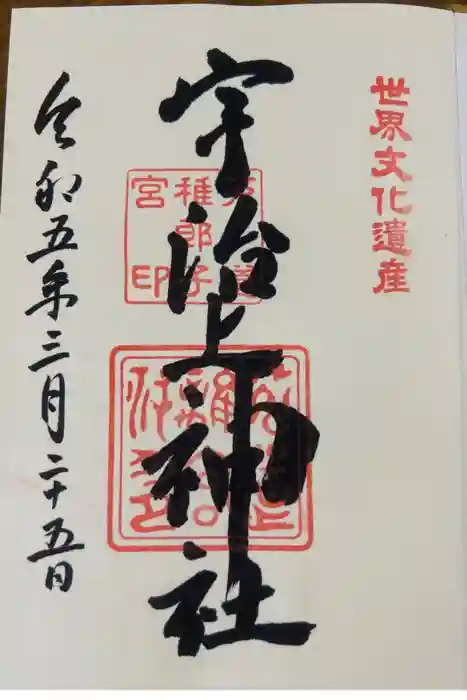 世界文化遺産
宇治上神社
稚郎子
宮印
令和五年三月二十五日